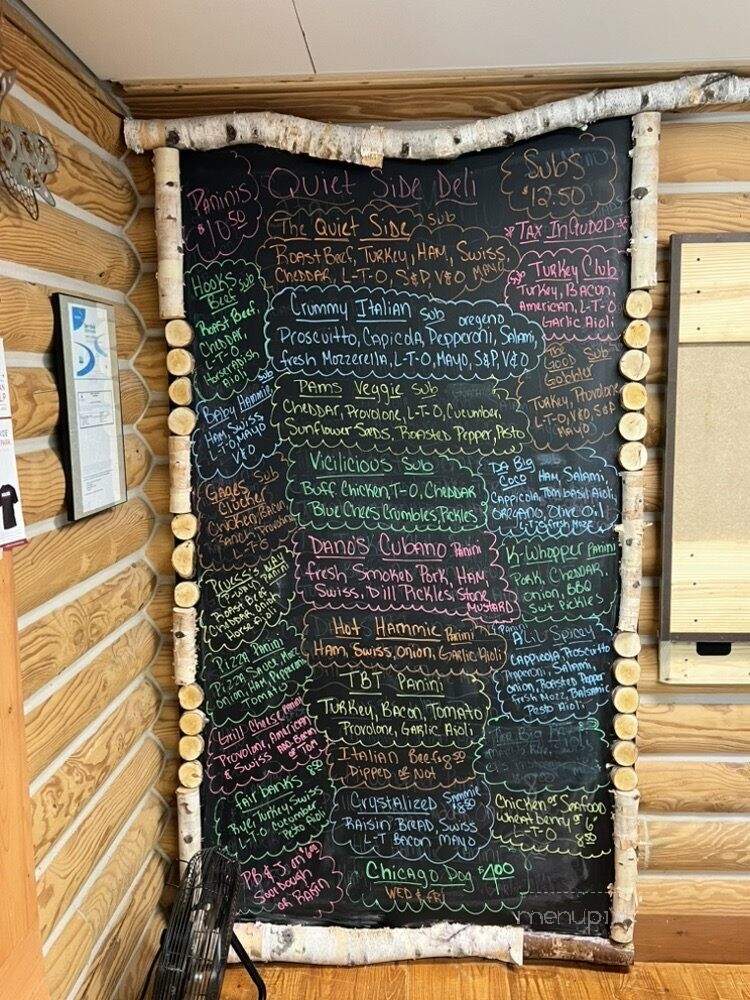 Paninis
$10.50
Quiet Side Deli
Subs
$12.50
* Tax Included *
The Quiet Side sub
Roast Beef, Turkey, Ham, Swiss,
Cheddar, L-T-O, S&P, V&O Mayo
Hooks
Beef sub
Roast Beef,
Cheddar,
L-T-O
Horseradish
Aioli
Turkey Club
Turkey, Bacon,
American, L-T-O
Garlic Aioli
Crummy Italian sub oregeno
Proscuitto, Capicola, Pepperoni, Salami,
fresh Mozzerella, L-T-O, Mayo, S&P, V&O
Sub
Gobbler
Turkey, Provolone
L-T-O, V&O, S&P
Mayo
Baby Hammie sub
Ham, Swiss
L-T-O, Mayo
V&O
Pams Veggie sub
Cheddar, Provolone, L-T-O, Cucumber,
Sunflower Seeds, Roasted Pepper, Pesto
Vicilicious Sub
Buff Chicken, T-O, Cheddar
Blue Chees Crumbles, Pickles
Da Big
Coco Ham, Salami,
Cappicola, Tom basil Aioli,
oregano, olive oil
L-T-O, fresh Mozz
Gages
Clucker
Chicken, Bacon,
Ranch, Provolone
L-T-O
Dano's Cubano Panini
fresh Smoked Pork, Ham,
Swiss, Dill Pickles, Stone
Mustard
K-Whopper Panini
Pork, Cheddar,
onion, BBQ
Swt Pickles
Panini
Roast Beef,
Cheddar, onion
Horse Aioli
Hot Hammie Panini
Ham, Swiss, Onion, Garlic Aioli
Panini
A Lil Spicey
Cappicola, Proscuitto
Pepperoni, Salami,
onion, Roasted Pepper
fresh Mozz, Balsamic
Pesto Aioli
Pizza Panini
Pizza Sauce, Mozz
onion, Ham, Pepperoni
Tomato
TBT Panini
Turkey, Bacon, Tomato
Provolone, Garlic Aioli
Grill Cheese Panini
Provolone, American
& Swiss Add Bacon
or Tom
Italian Beef 8.50
Dipped or Not
Fair banks 8.50
Rye, Turkey, Swiss
L-T-O Cucumber
Pesto Aioli
Crystalized Sammie
$8.50
Raisin Bread, Swiss
L-T Bacon Mayo
Chicken or Seafood
Wheatberry or 6"
L-T-O 8.50
PB & J on
Sourdough
or Raisin
Chicago Dog $4.00
Wed & Fri
menupix